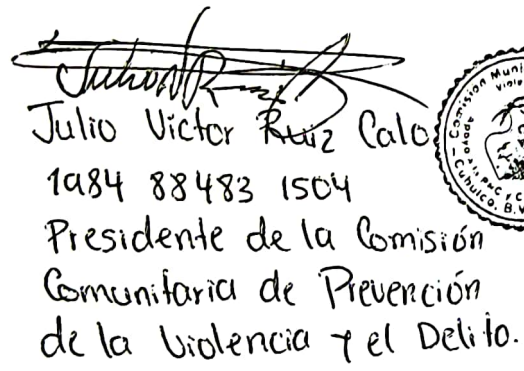 Julio Victor Ruiz Calo
1984 88483 1504
Presidente de la Comisión
Comunitaria de Prevención
de la Violencia y el Delito.
Comision Muni
Viole
Apoyo
Cubulco, B.V